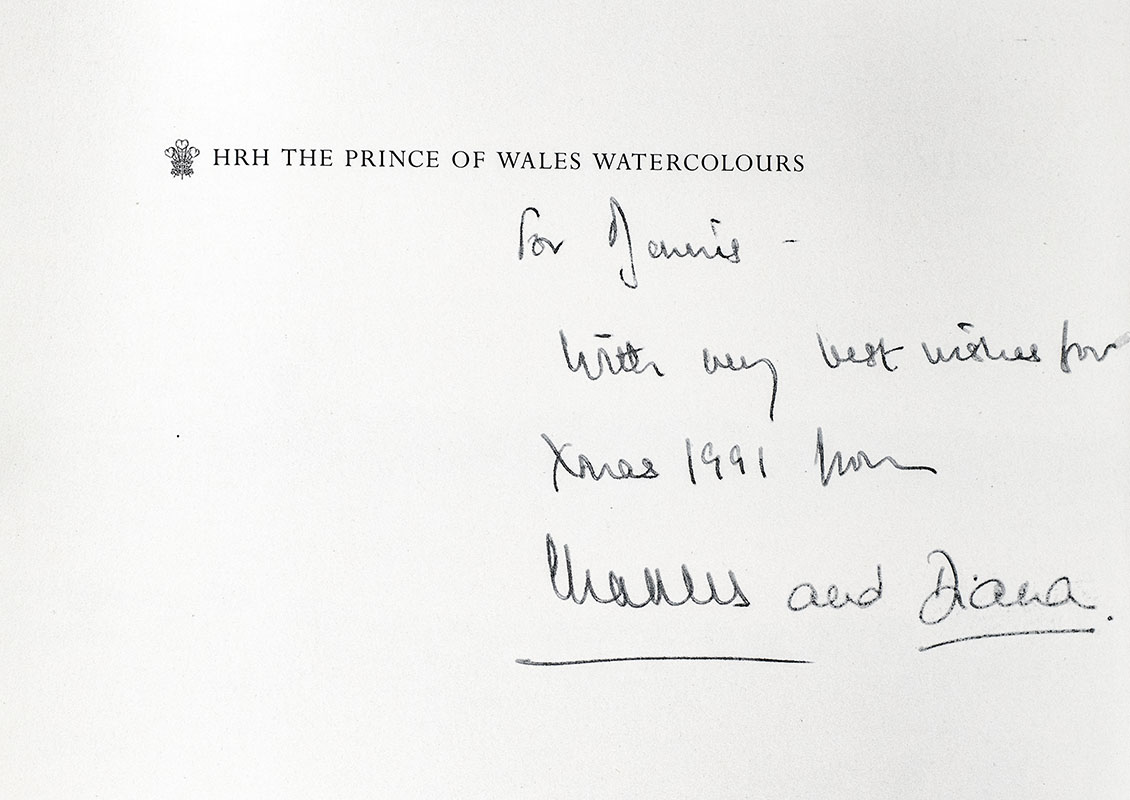 HRH THE PRINCE OF WALES WATERCOLOURS
For Dennis -
With very best wishes for
Xmas 1991 from
Charles and Diana.